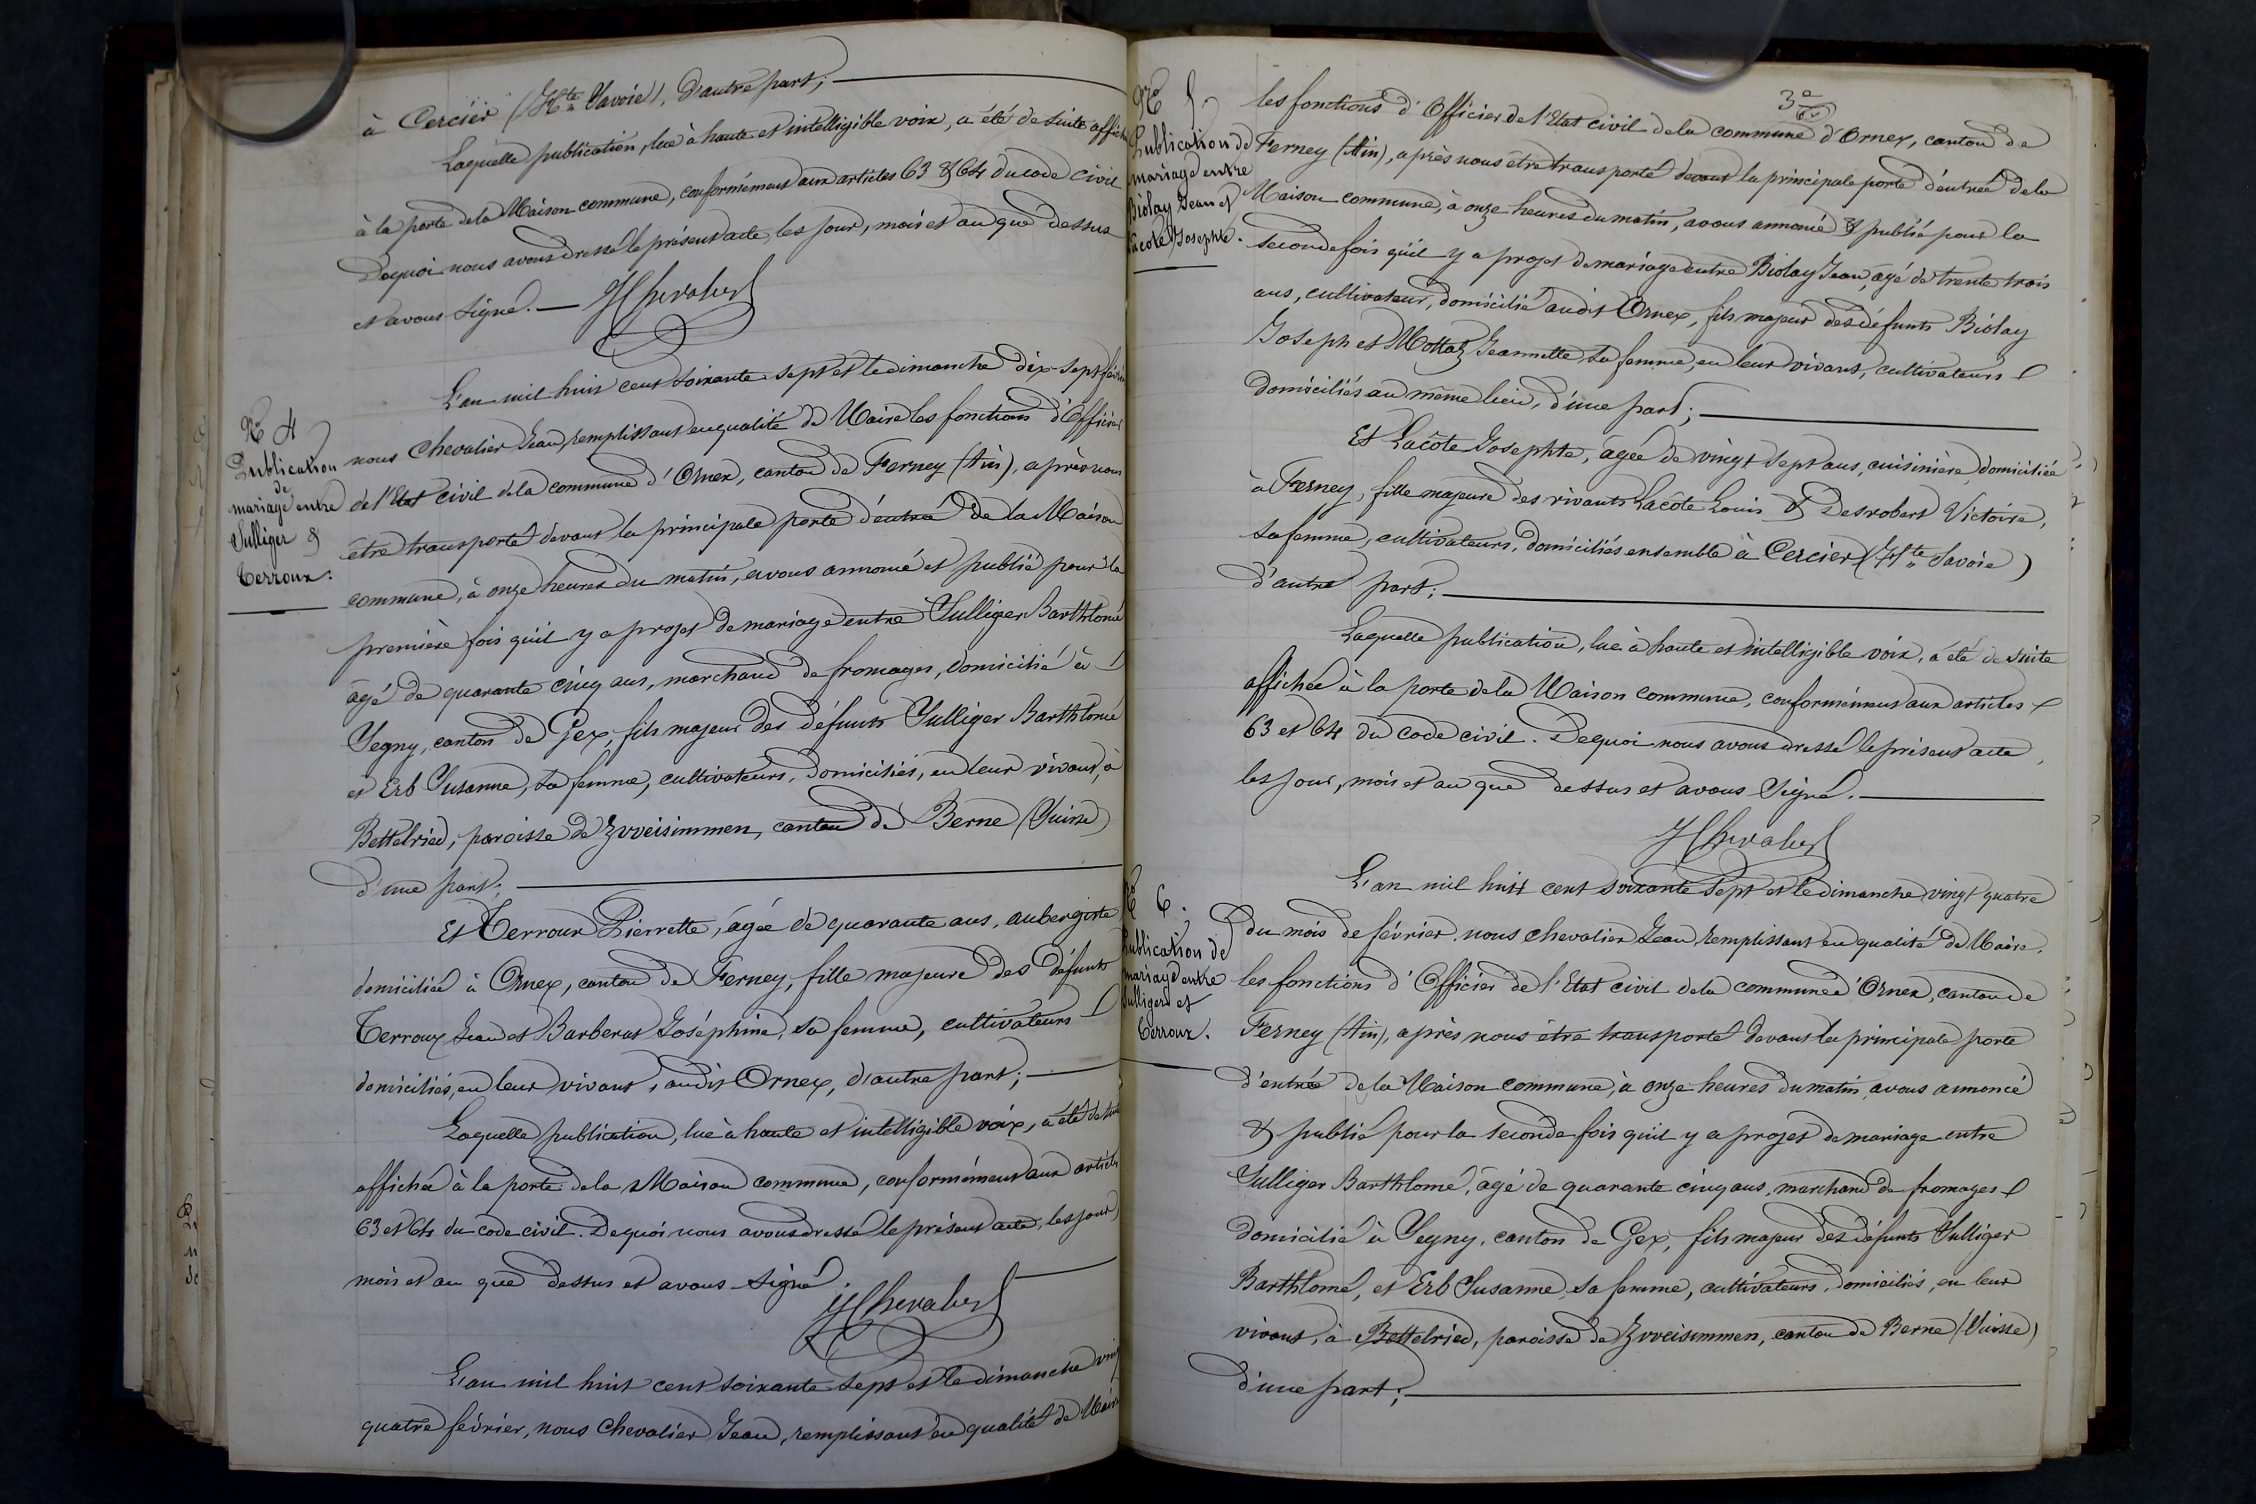 à Cercier (Hte Savoie), d'autre part;
Laquelle publication, lue à haute et intelligible voix, a été de suite affichée
à la porte de la Maison commune, conformément aux articles 63 & 64 du code civil
Dequoi nous avons dressé le présent acte, les jour, mois et an que dessus
et avons signé. JChevalier
No 4
Publication
de
mariage entre
Sulliger &
Terroux.
L'an mil huit cent soixante sept et le dimanche dix-sept février
nous Chevalier Jean, remplissant en qualité de Maire les fonctions d'Officier
de l'Etat civil de la commune d'Ornex, canton de Ferney (Ain), après nous
être transporté devant la principale porte d'entrée de la Maison
commune, à onze heures du matin, avons annoncé et publié pour la
première fois qu'il y a projet de mariage entre Sulliger Barthlomé
âgé de quarante cinq ans, marchand de fromages, domicilié à
Segny, canton de Gex, fils majeur des défunts Sulliger Barthlomé
et Erb Susanne, sa femme, cultivateurs, domiciliés, en leur vivant, à
Bettelried, paroisse de Zweisimmen, canton de Berne (Suisse)
d'une part;
Et Terroux Pierrette, âgée de quarante ans, aubergiste
domiciliée à Ornex, canton de Ferney, fille majeure des défunts
Terroux Jean et Barberat Joséphine, sa femme, cultivateurs
domiciliés, en leur vivant, audit Ornex, d'autre part;
Laquelle publication, lue à haute et intelligible voix, a été de suite
affichée à la porte de la Maison commune, conformément aux articles
63 et 64 du code civil. Dequoi nous avons dressé le présent acte, les jour,
mois et an que dessus et avons signé.
JChevalier
L'an mil huit cent soixante sept et le dimanche vingt
quatre février, nous Chevalier Jean, remplissant en qualité de Maire
3e
No 5.
Publication de
mariage entre
Biolay Jean et
Lacôte Josephte.
les fonctions d'Officier de l'Etat civil de la commune d'Ornex, canton de
Ferney (Ain), après nous être transporté devant la principale porte d'entrée de la
Maison commune, à onze heures du matin, avons annoncé & publié pour la
seconde fois qu'il y a projet de mariage entre Biolay Jean, âgé de trente trois
ans, cultivateur, domicilié audit Ornex, fils majeur des défunts Biolay
Joseph et Mottaz Jeannette sa femme, en leur vivant, cultivateurs
domiciliés au même lieu, d'une part;
Et Lacôte Josephte, âgée de vingt sept ans, cuisinière, domiciliée
à Ferney, fille majeure des vivants Lacôte Louis & Desrobert Victoire,
sa femme, cultivateurs, domiciliés ensemble à Cercier (Hte Savoie)
d'autre part;
Laquelle publication, lue à haute et intelligible voix, a été de suite
affichée à la porte de la Maison commune, conformément aux articles
63 et 64 du code civil. Dequoi nous avons dressé le présent acte,
les jour, mois et an que dessus et avons signé.
JChevalier
No 6.
Publication de
mariage entre
Sulliger et
Terroux.
L'an mil huit cent soixante sept et le dimanche vingt quatre
du mois de février, nous Chevalier Jean, remplissant en qualité de Maire,
les fonctions d'Officier de l'Etat civil de la commune d'Ornex, canton de
Ferney (Ain), après nous être transporté devant la principale porte
d'entrée de la Maison commune, à onze heures du matin, avons annoncé
& publié pour la seconde fois qu'il y a projet de mariage entre
Sulliger Barthlomé, âgé de quarante cinq ans, marchand de fromages
domicilié à Segny, canton de Gex, fils majeur des défunts Sulliger
Barthlomé, et Erb Susanne, sa femme, cultivateurs, domiciliés, en leur
vivant, à Bettelried, paroisse de Zweisimmen, canton de Berne (Suisse)
d'une part;